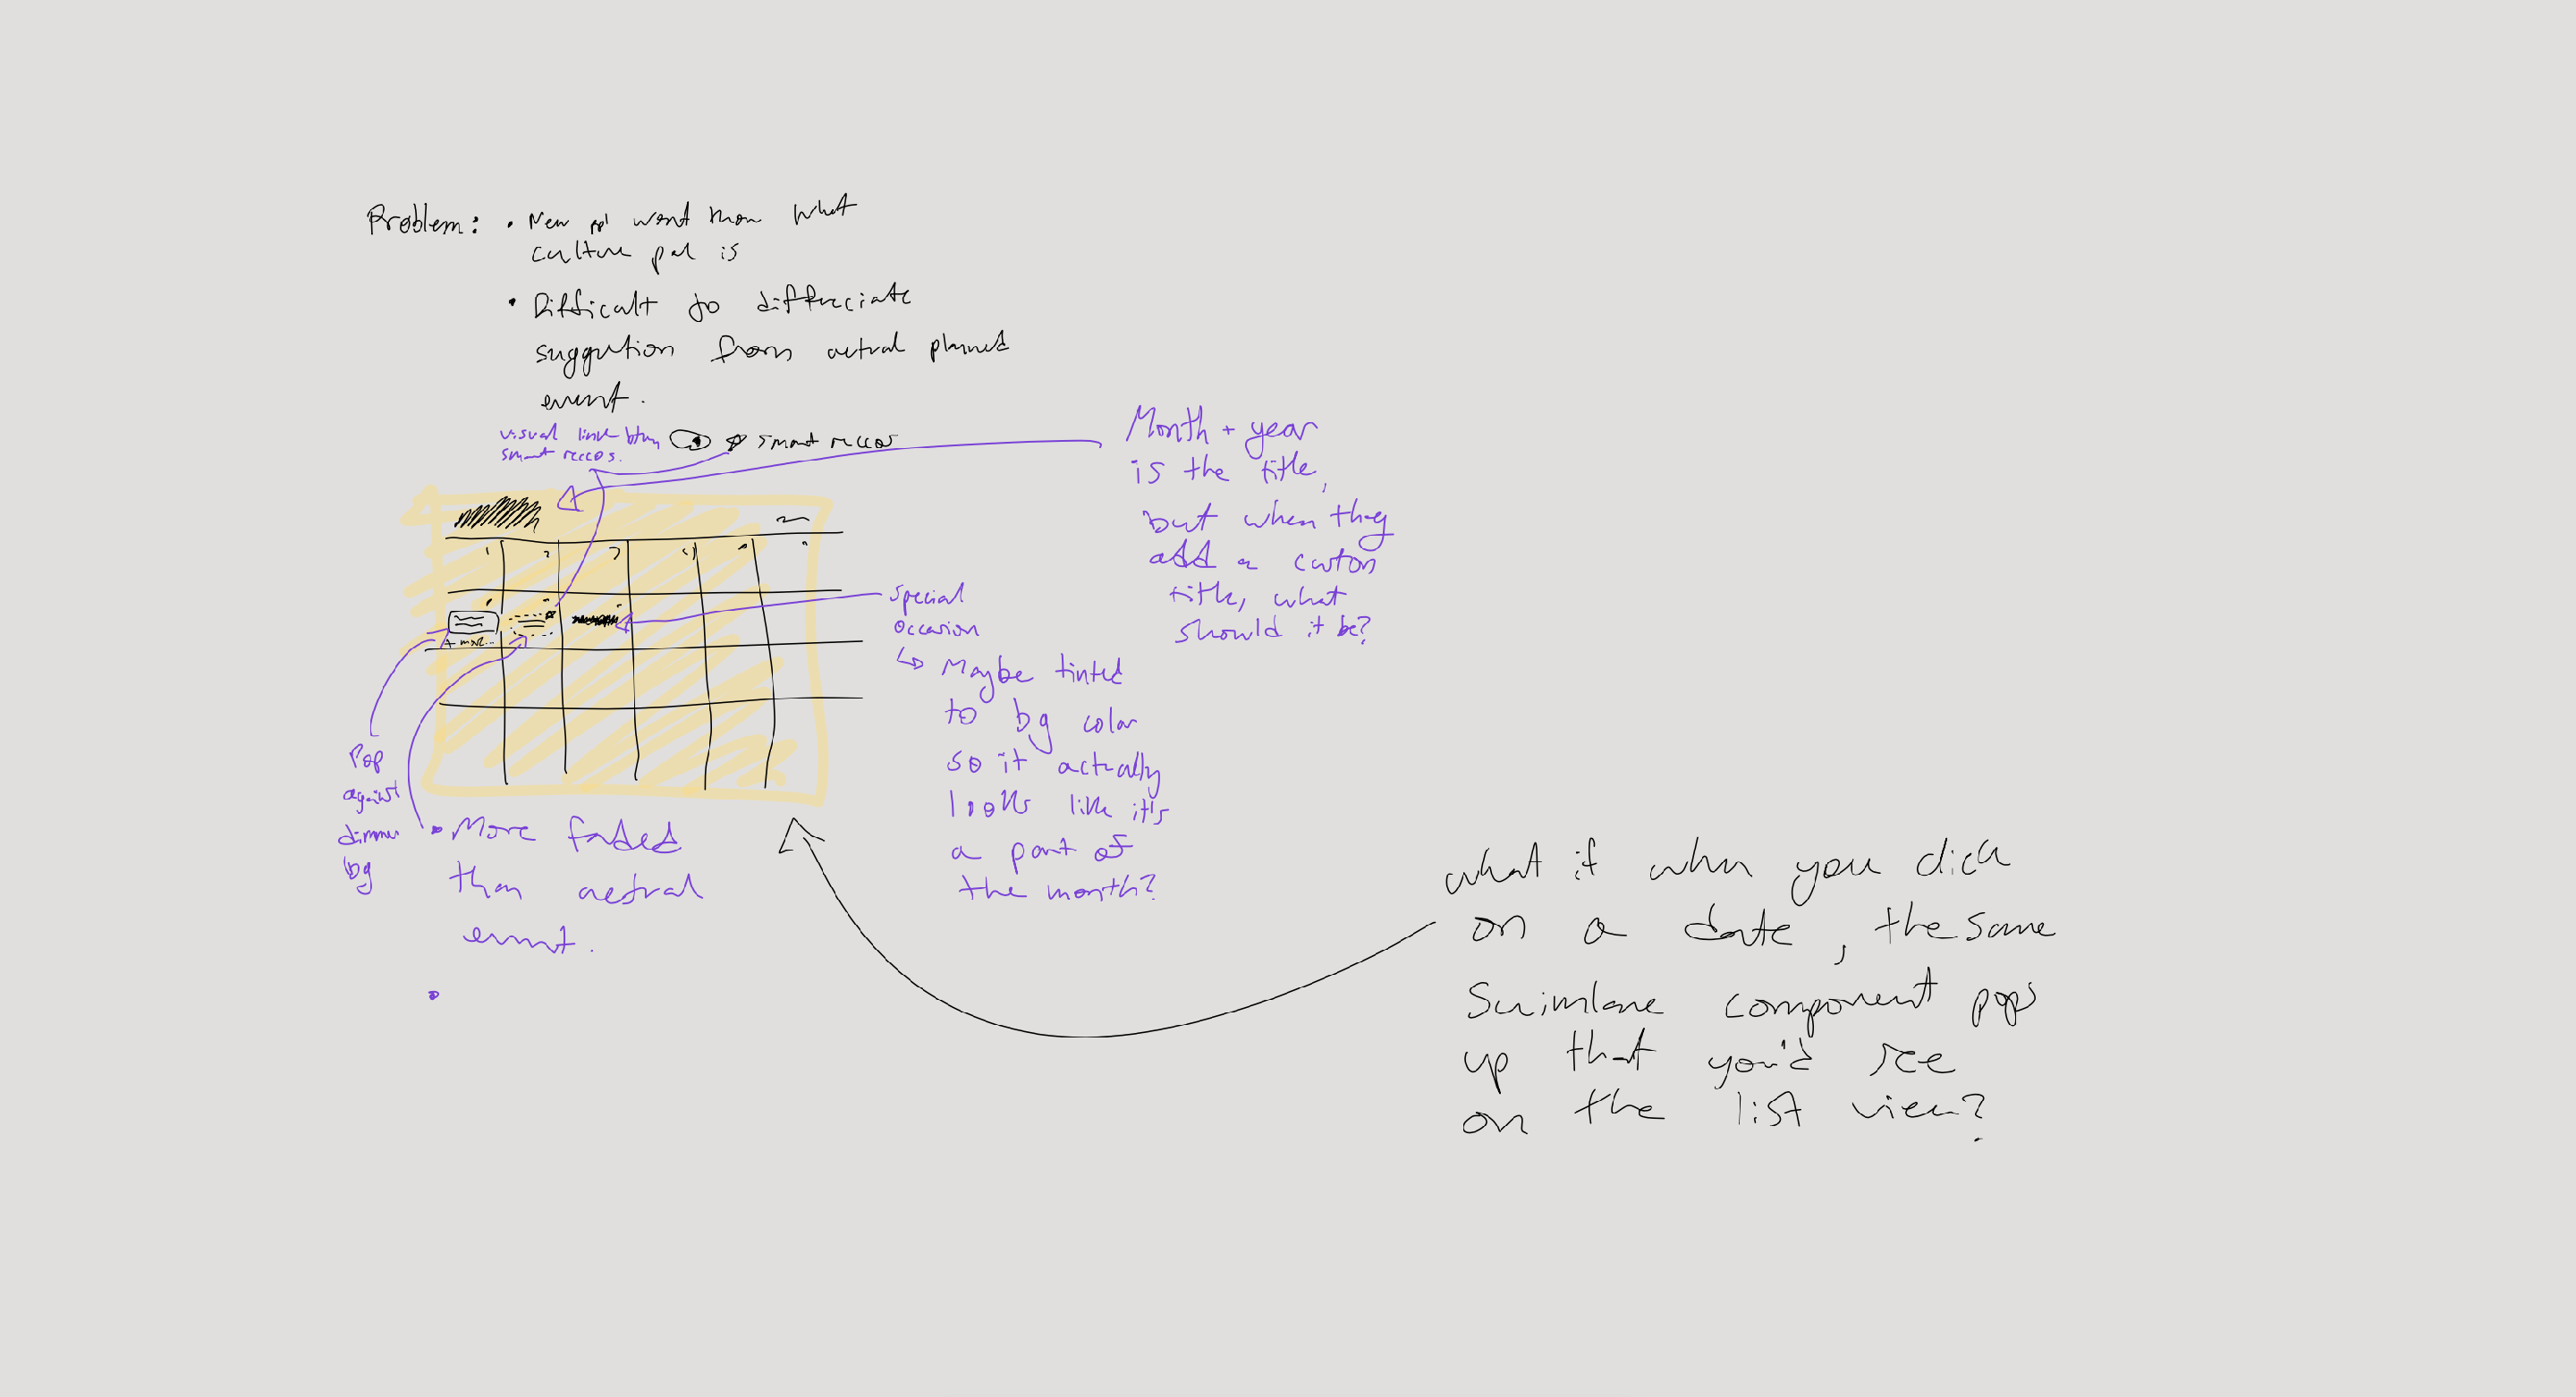 Problem: • New ppl wont know what
culture pal is
• Difficult to differciate
suggestion from actual planned
event.
visual link btwn
smart reccos.
smart reccos
Month + year
is the title,
but when they
add a custom
title, what
should it be?
1 2 3 4
+ more...
Special
occasion
↳ Maybe tinted
to bg color
so it actually
looks like it's
a part of
the month?
Pop
against
dimmer
bg
• More faded
than actual
event.
•
what if when you click
on a date, the same
Swimlane component pops
up that you'd see
on the list view?